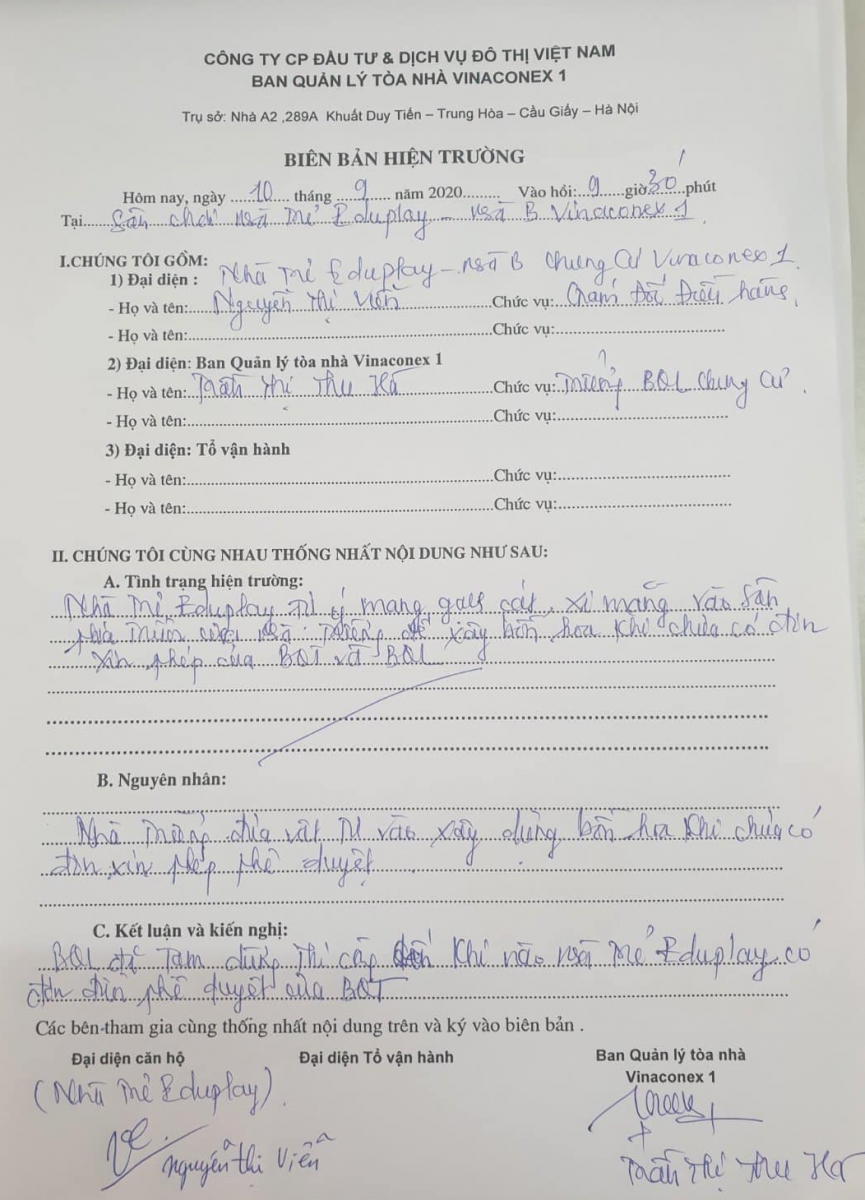 CÔNG TY CP ĐẦU TƯ & DỊCH VỤ ĐÔ THỊ VIỆT NAM
BAN QUẢN LÝ TÒA NHÀ VINACONEX 1
Trụ sở: Nhà A2 ,289A Khuất Duy Tiến – Trung Hòa – Cầu Giấy – Hà Nội
BIÊN BẢN HIỆN TRƯỜNG
Hôm nay, ngày .....10..... tháng ...9..... năm 2020......... Vào hồi:..9....giờ30...phút
Tại.....Sân chơi nhà trẻ Eduplay – nhà B Vinaconex 1.
I.CHÚNG TÔI GỒM:
1) Đại diện : Nhà trẻ Eduplay – nhà B Chung Cư Vinaconex 1
- Họ và tên: Nguyễn Thị Viễn Chức vụ:
- Họ và tên:.......... Chức vụ:..........
2) Đại diện: Ban Quản lý tòa nhà Vinaconex 1
- Họ và tên: Trần Thị Thu Hà Chức vụ: Trưởng BQL Chung Cư.
- Họ và tên:.......... Chức vụ:..........
3) Đại diện: Tổ vận hành
- Họ và tên:.......... Chức vụ:..........
- Họ và tên:.......... Chức vụ:..........
II. CHÚNG TÔI CÙNG NHAU THỐNG NHẤT NỘI DUNG NHƯ SAU:
A. Tình trạng hiện trường:
Nhà trẻ Eduplay tự ý mang gạch cát, xi măng vào sân
phía trước của nhà trường để xây bồn hoa khi chưa có đơn
xin phép của BQT và BQL
B. Nguyên nhân:
Nhà trường đưa vật tư vào xây dựng bồn hoa khi chưa có
đơn xin phép phê duyệt
C. Kết luận và kiến nghị:
BQL đã tạm dừng thi công đến khi nào nhà trẻ Eduplay có
đơn phê duyệt của BQT
Các bên-tham gia cùng thống nhất nội dung trên và ký vào biên bản .
Đại diện căn hộ Đại diện Tổ vận hành Ban Quản lý tòa nhà
Vinaconex 1
(Nhà trẻ Eduplay)
Nguyễn Thị Viễn
Trần Thị Thu Hà